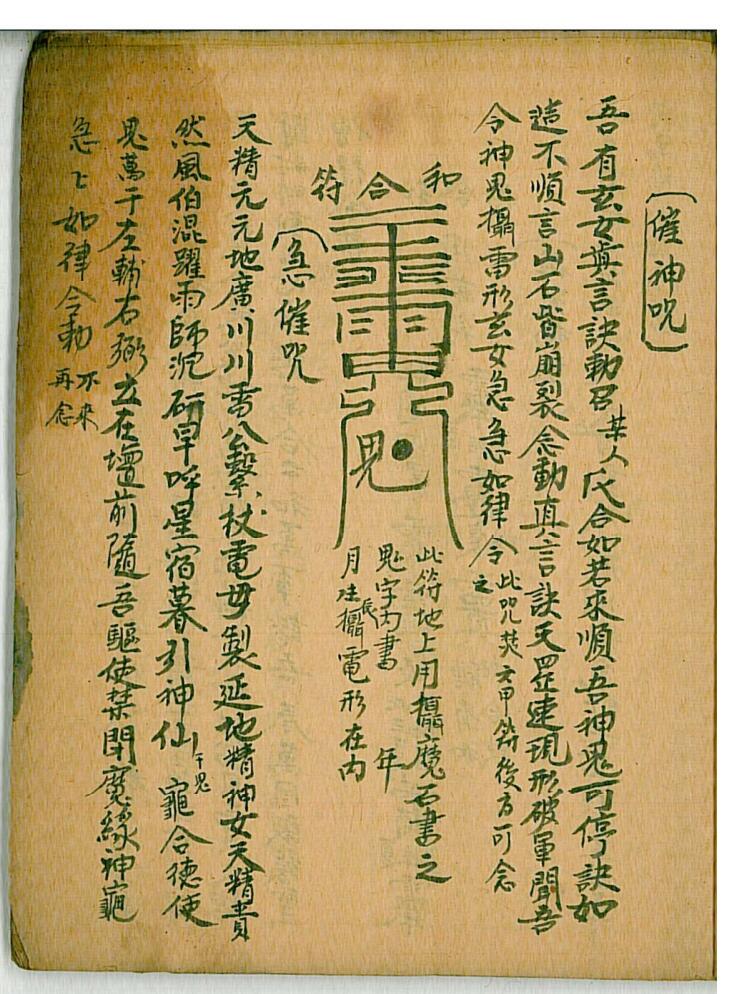 催神咒
吾有玄女真言訣勅召某人氏合如若來順吾神鬼可停訣如
造不順言山石皆崩裂念動真言訣天罡速現形破軍聞吾
令神鬼攝雷形玄女急急如律令此咒焚六甲符後方可念之
和合符
鬼
此符地上用攝魔石書之
鬼字內書 年
月 氏攝電形在內
急催咒
天精元元地廣川川雷公繫杖電母製延地精神女天精貴
然風伯混躍雨師沉研早呼星宿暮引神仙千鬼龜合德使
鬼萬千左輔右弼立在壇前隨吾驅使禁閉魔緣神龜
急急如律令勅不來再念